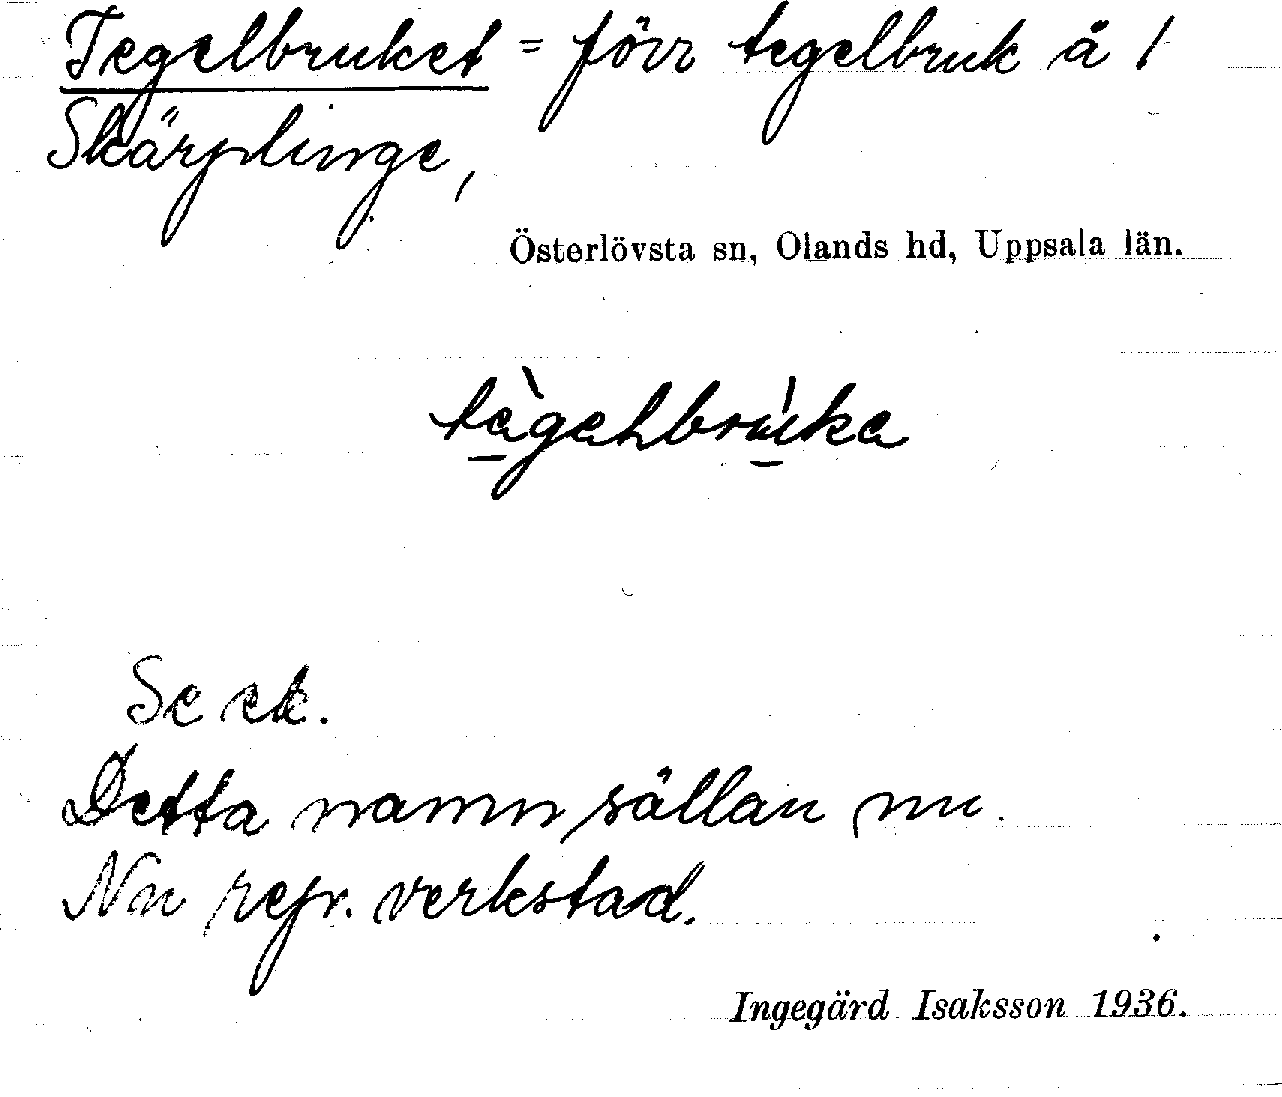 Tegelbruket = förr tegelbruk å 1
Skärplinge,
Österlövsta sn, Olands hd, Uppsala län.
tègahbrùka
Se ek.
Detta namn sällan nu.
Nu repr. verkstad.
Ingegärd Isaksson 1936.